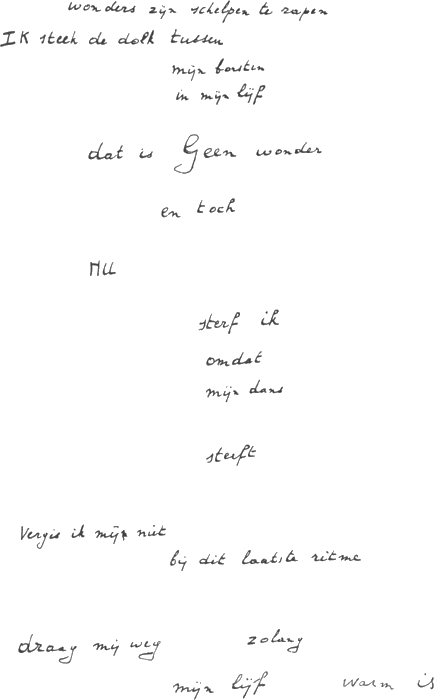 wonders zijn schelpen te rapen
IK steek de dolk tussen
mijn borsten
in mijn lijf
dat is Geen wonder
en toch
NU
sterf ik
omdat
mijn dans
sterft
Vergis ik mijn niet
bij dit laatste ritme
draag mij weg zolang
mijn lijf warm is